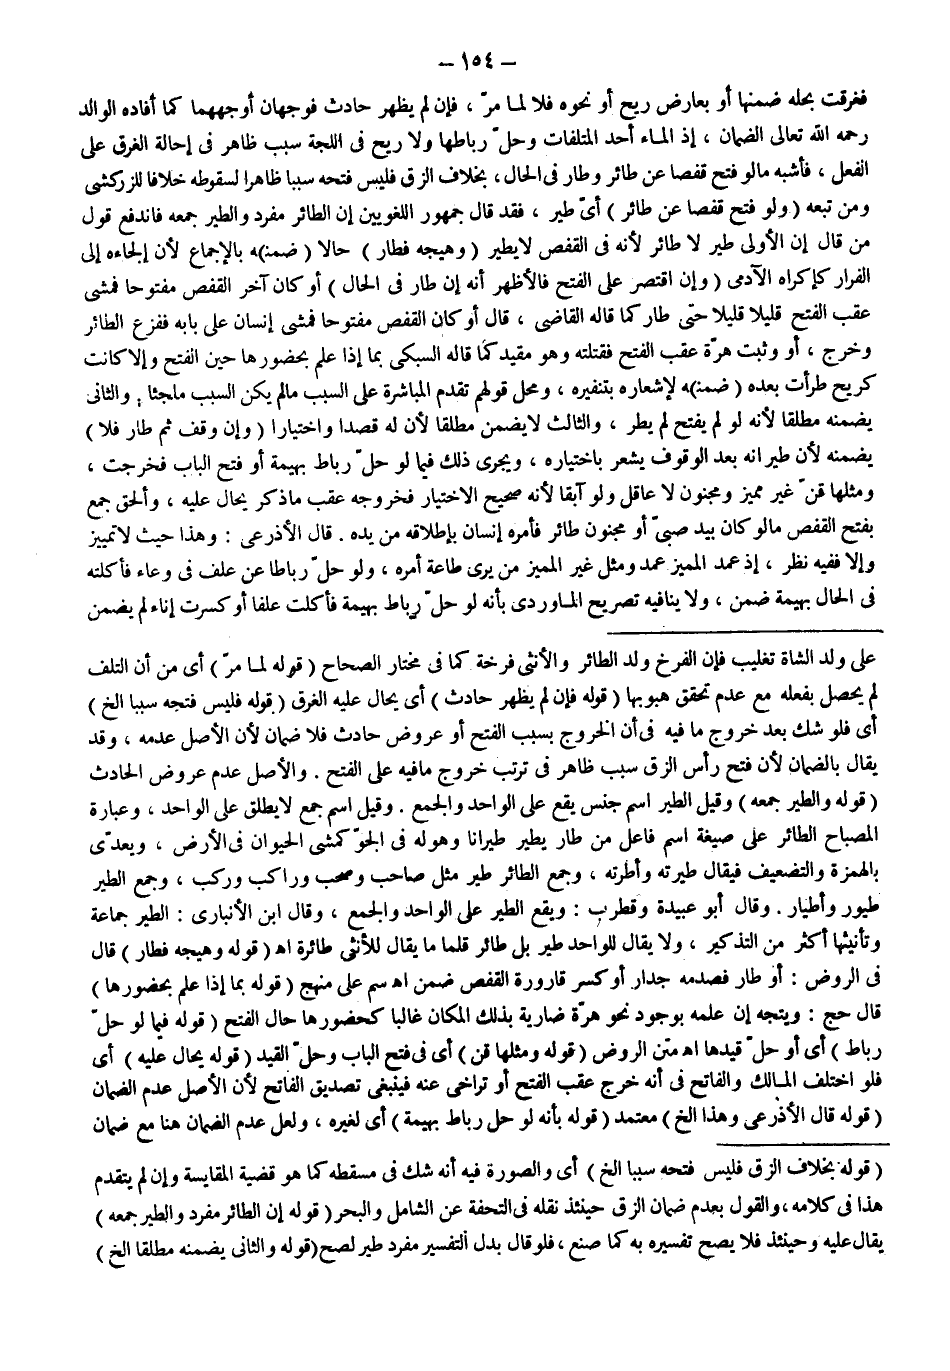 - ١٥٤ -
فغرقت بحله ضمنها أو بعارض ريح أو نحوه فلا لما مرّ ، فإن لم يظهر حادث فوجهان أوجههما كما أفاده الوالد
رحمه الله تعالى الضمان ، إذ الماء أحد المتلفات وحلّ رباطها ولا ريح فى اللجة سبب ظاهر فى إحالة الغرق على
الفعل ، فأشبه مالو فتح قفصا عن طائر وطار فى الحال ، بخلاف الزق فليس فتحه سببا ظاهرا لسقوطه خلافا للزركشى
ومن تبعه ( ولو فتح قفصا عن طائر ) أىّ طير ، فقد قال جمهور اللغويين إن الطائر مفرد والطير جمعه فاندفع قول
من قال إن الأولى طير لا طائر لأنه فى القفص لايطير ( وهيجه فطار ) حالا ( ضمن)ه بالإجماع لأن إلجاءه إلى
الفرار كإكراه الآدمى ( وإن اقتصر على الفتح فالأظهر أنه إن طار فى الحال ) أو كان آخر القفص مفتوحا فمشى
عقب الفتح قليلا قليلا حتى طار كما قاله القاضى ، قال أو كان القفص مفتوحا فمشى إنسان على بابه ففزع الطائر
وخرج ، أو وثبت هرّة عقب الفتح فقتلته وهو مقيد كما قاله السبكى بما إذا علم بحضورها حين الفتح وإلا كانت
كريح طرأت بعده ( ضمن)ه لإشعاره بتنفيره ، ومحل قولهم تقدم المباشرة على السبب مالم يكن السبب ملجئا ، والثانى
يضمنه مطلقا لأنه لو لم يفتح لم يطر ، والثالث لايضمن مطلقا لأن له قصدا واختيارا ( وإن وقف ثم طار فلا )
يضمنه لأن طيرانه بعد الوقوف يشعر باختياره ، ويجرى ذلك فيما لو حلّ رباط بهيمة أو فتح الباب فخرجت ،
ومثلها قنّ غير مميز ومجنون لا عاقل ولو آبقا لأنه صحيح الاختيار فخروجه عقب ماذكر يحال عليه ، وألحق جمع
بفتح القفص مالو كان بيد صبىّ أو مجنون طائر فأمره إنسان بإطلاقه من يده . قال الأذرعى : وهذا حيث لاتمييز
وإلا ففيه نظر ، إذ عمد المميز عمد ومثل غير المميز من يرى طاعة أمره ، ولو حلّ رباطا عن علف فى وعاء فأكلته
فى الحال بهيمة ضمن ، ولا ينافيه تصريح الماوردى بأنه لو حلّ رباط بهيمة فأكلت علفا أو كسرت إناء لم يضمن
على ولد الشاة تغليب فإن الفرخ ولد الطائر والأنثى فرخة كما فى مختار الصحاح ( قوله لما مرّ ) أى من أن التلف
لم يحصل بفعله مع عدم تحقق هبوبها ( قوله فإن لم يظهر حادث ) أى يحال عليه الغرق ( قوله فليس فتحه سببا الخ )
أى فلو شك بعد خروج ما فيه فى أن الخروج بسبب الفتح أو عروض حادث فلا ضمان لأن الأصل عدمه ، وقد
يقال بالضمان لأن فتح رأس الزق سبب ظاهر فى ترتب خروج مافيه على الفتح . والأصل عدم عروض الحادث
( قوله والطير جمعه ) وقيل الطير اسم جنس يقع على الواحد والجمع . وقيل اسم جمع لايطلق على الواحد ، وعبارة
المصباح الطائر على صيغة اسم فاعل من طار يطير طيرانا وهوله فى الجوّ كمشى الحيوان فى الأرض ، ويعدّى
بالهمزة والتضعيف فيقال طيرته وأطرته ، وجمع الطائر طير مثل صاحب وصحب وراكب وركب ، وجمع الطير
طيور وأطيار . وقال أبو عبيدة وقطرب : ويقع الطير على الواحد والجمع ، وقال ابن الأنبارى : الطير جماعة
وتأنيثها أكثر من التذكير ، ولا يقال للواحد طير بل طائر قلما ما يقال للأنثى طائرة اه ( قوله وهيجه فطار ) قال
فى الروض : أو طار فصدمه جدار أو كسر قارورة القفص ضمن اه سم على منهج ( قوله بما إذا علم بحضورها )
قال حج : ويتجه إن علمه بوجود نحو هرّة ضارية بذلك المكان غالبا كحضورها حال الفتح ( قوله فيما لو حلّ
رباط ) أى أو حلّ قيدها اه متن الروض ( قوله ومثلها قن ) أى فى فتح الباب وحلّ القيد ( قوله يحال عليه ) أى
فلو اختلف المالك والفاتح فى أنه خرج عقب الفتح أو تراخى عنه فينبغى تصديق الفاتح لأن الأصل عدم الضمان
( قوله قال الأذرعى وهذا الخ ) معتمد ( قوله بأنه لو حل رباط بهيمة ) أى لغيره ، ولعل عدم الضمان هنا مع ضمان
( قوله بخلاف الزق فليس فتحه سببا الخ ) أى والصورة فيه أنه شك فى مسقطه كما هو قضية المقايسة وإن لم يتقدم
هذا فى كلامه ، والقول بعدم ضمان الزق حينئذ نقله فى التحفة عن الشامل والبحر ( قوله إن الطائر مفرد والطير جمعه )
يقال عليه وحينئذ فلا يصح تفسيره به كما صنع ، فلو قال بدل التفسير مفرد طير لصح (قوله والثانى يضمنه مطلقا الخ )